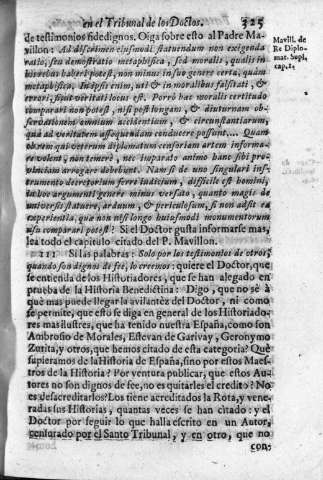 en el Tribunal de los Doctos. 325
de testimonios fidedignos. Oiga sobre esto al Padre Ma-
villon: Ad discrimen ejusmodi statuendum non exigenda
ratio, seu demonstratio metaphisica, sed moralis, qualis in
his rebus haberi potest, non minus in suo genere certa, quàm
metaphisica. Inipse enim, uti & in moralibus falsitati, &
errori, sicut veritati locus est. Porrò hæc moralis certitudo
comparari non potest, nisi post longam, & diuturnam ob-
servationem omnium accidentium, & circunstantiarum,
quæ ad veritatem assequendam conducere possunt.... Quam-
obrem qui veterum diplomatum censoriam artem informa-
re volent, non temerè, nec imparato animo hanc sibi pro-
vinciam arrogare debebunt. Nam si de uno singulari ins-
trumento decretorium ferre iudicium, difficile est homini,
in hoc argumento genere minus versato, quanto magis de
universis statuere, arduum, & periculosum, si non adsit ea
experientia, quæ non nisi longo huiusmodi monumentorum
usu comparari potest? Si el Doctor gusta informarse mas,
lea todo el capitulo citado del P. Mavillon.
Mavill. de
Re Diplo-
mat. Supl.
cap. 1.
211 Si las palabras: Solo por los testimonios de otros,
quando son dignos de feè, lo creemos: quiere el Doctor, que
se entienda de los Historiadores, que se han alegado en
prueba de la Historia Benedictina: Digo, que no sè à
què mas puede llegar la avilantèz del Doctor, ni como
se permite, que esto se diga en general de los Historiado-
res mas ilustres, que ha tenido nuestra España, como son
Ambrosio de Morales, Estevan de Garivay, Geronymo
Zurita, y otros, que hemos citado de esta categoria? Què
supieramos de la Historia de España, sino por estos Maes-
tros de la Historia? Por ventura publicar, que estos Au-
tores no son dignos de feè, no es quitarles el credito? No
es desacreditarlos? Los tiene acreditados la Rota, y vene-
radas sus Historias, quantas veces se han citado: y el
Doctor por seguir lo que halla escrito en un Autor,
censurado por el Santo Tribunal, y en otro, que no
con-